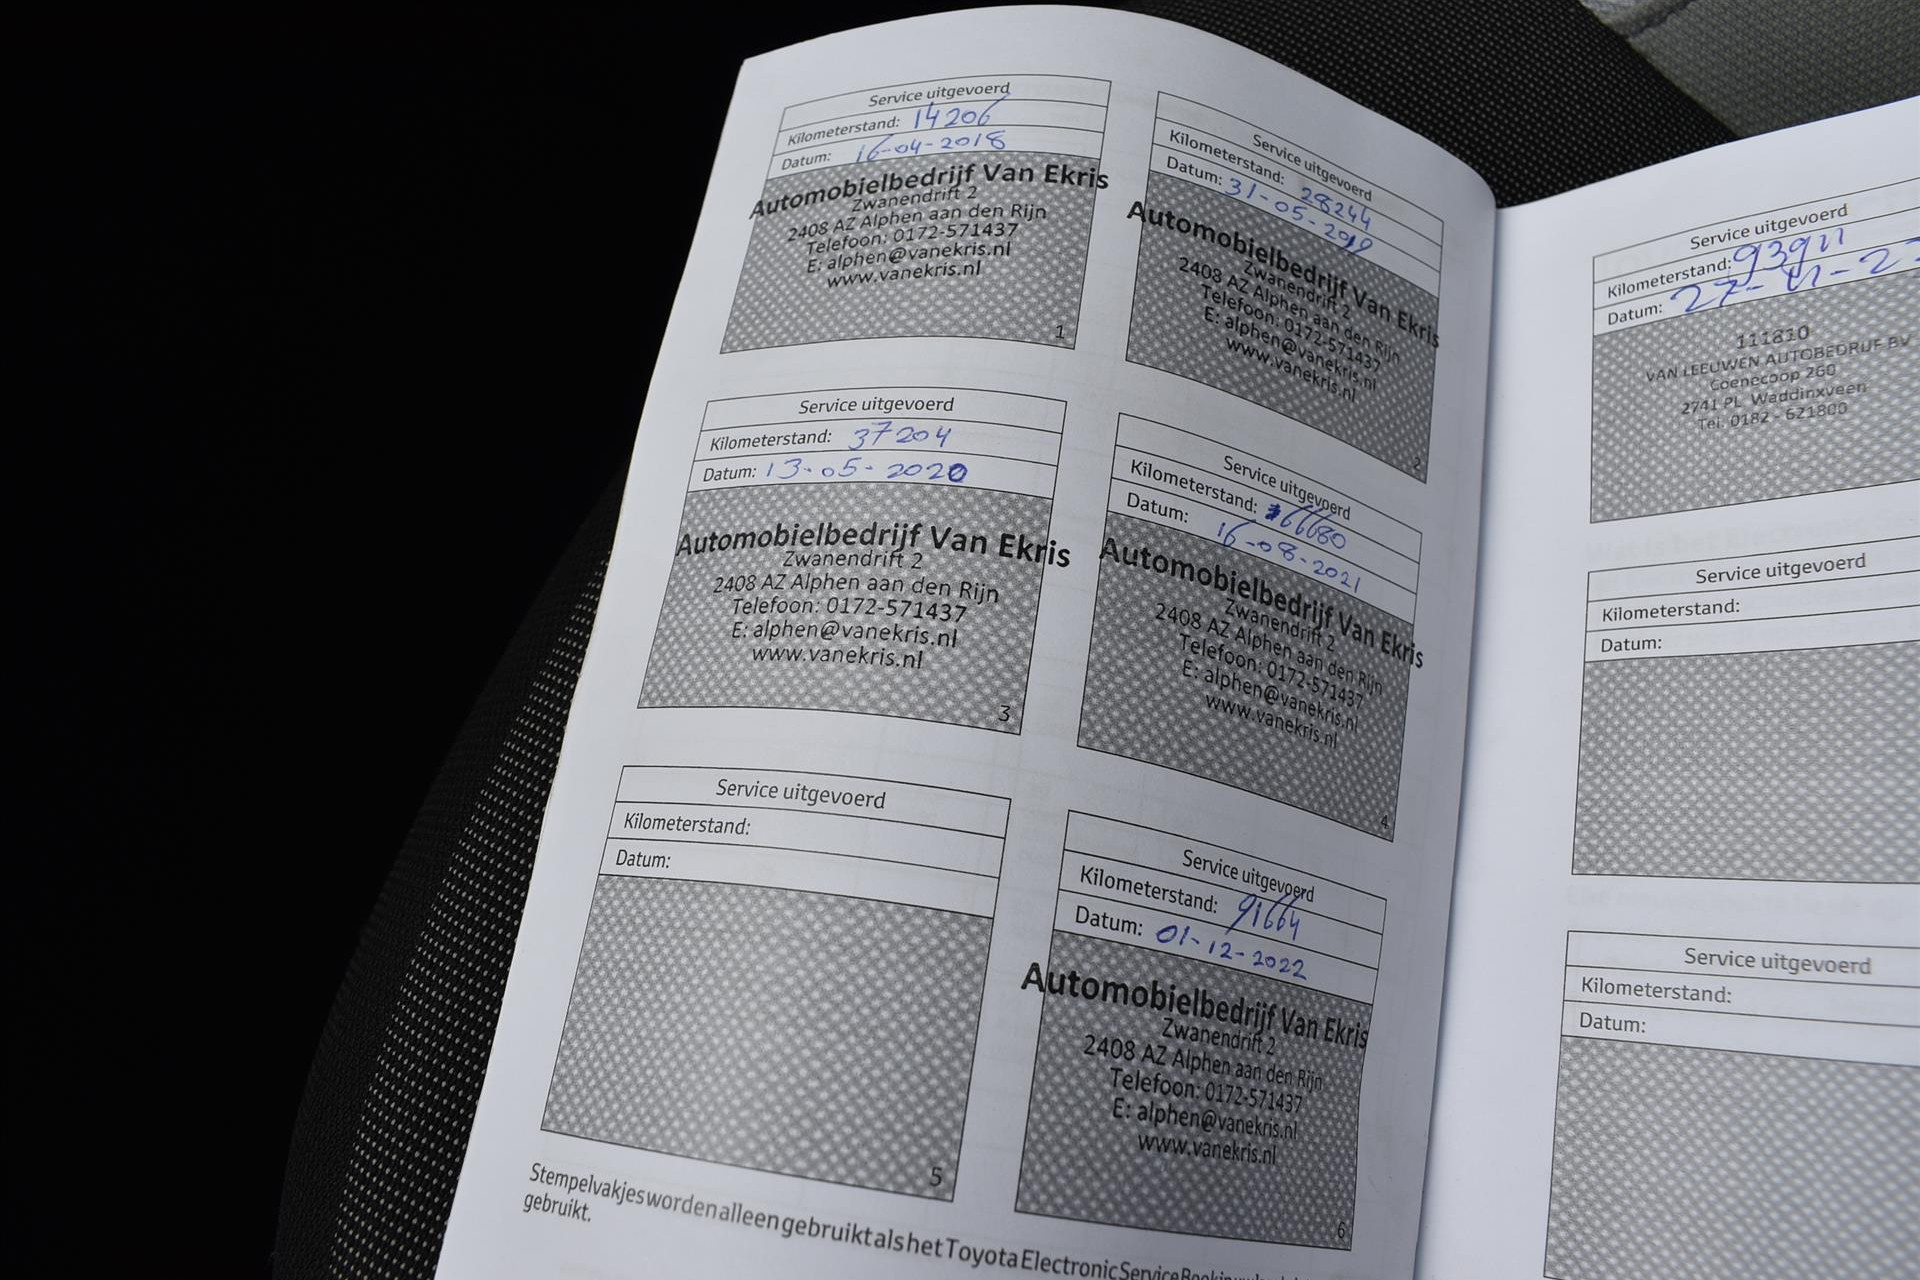 Service uitgevoerd
Kilometerstand: 14206
Datum: 16-04-2018
Automobielbedrijf Van Ekris
Zwanendrift 2
2408 AZ Alphen aan den Rijn
Telefoon: 0172-571437
E: alphen@vanekris.nl
www.vanekris.nl
1
Service uitgevoerd
Kilometerstand: 28244
Datum: 31-05-2019
Automobielbedrijf Van Ekris
Zwanendrift 2
2408 AZ Alphen aan den Rijn
Telefoon: 0172-571437
E: alphen@vanekris.nl
www.vanekris.nl
2
Service uitgevoerd
Kilometerstand: 37204
Datum: 13-05-2020
Automobielbedrijf Van Ekris
Zwanendrift 2
2408 AZ Alphen aan den Rijn
Telefoon: 0172-571437
E: alphen@vanekris.nl
www.vanekris.nl
3
Service uitgevoerd
Kilometerstand: 66680
Datum: 16-08-2021
Automobielbedrijf Van Ekris
Zwanendrift 2
2408 AZ Alphen aan den Rijn
Telefoon: 0172-571437
E: alphen@vanekris.nl
www.vanekris.nl
4
Service uitgevoerd
Kilometerstand:
Datum:
5
Service uitgevoerd
Kilometerstand: 91664
Datum: 01-12-2022
Automobielbedrijf Van Ekris
Zwanendrift 2
2408 AZ Alphen aan den Rijn
Telefoon: 0172-571437
E: alphen@vanekris.nl
www.vanekris.nl
6
Stempelvakjes worden alleen gebruikt als het Toyota Electronic Service
gebruikt.
Service uitgevoerd
Kilometerstand: 93911
Datum: 27-11-2
111810
VAN LEEUWEN AUTOBEDRIJF BV
Coenecoop 260
2741 PL Waddinxveen
Tel. 0182 - 621800
Service uitgevoerd
Kilometerstand:
Datum:
Service uitgevoerd
Kilometerstand:
Datum: